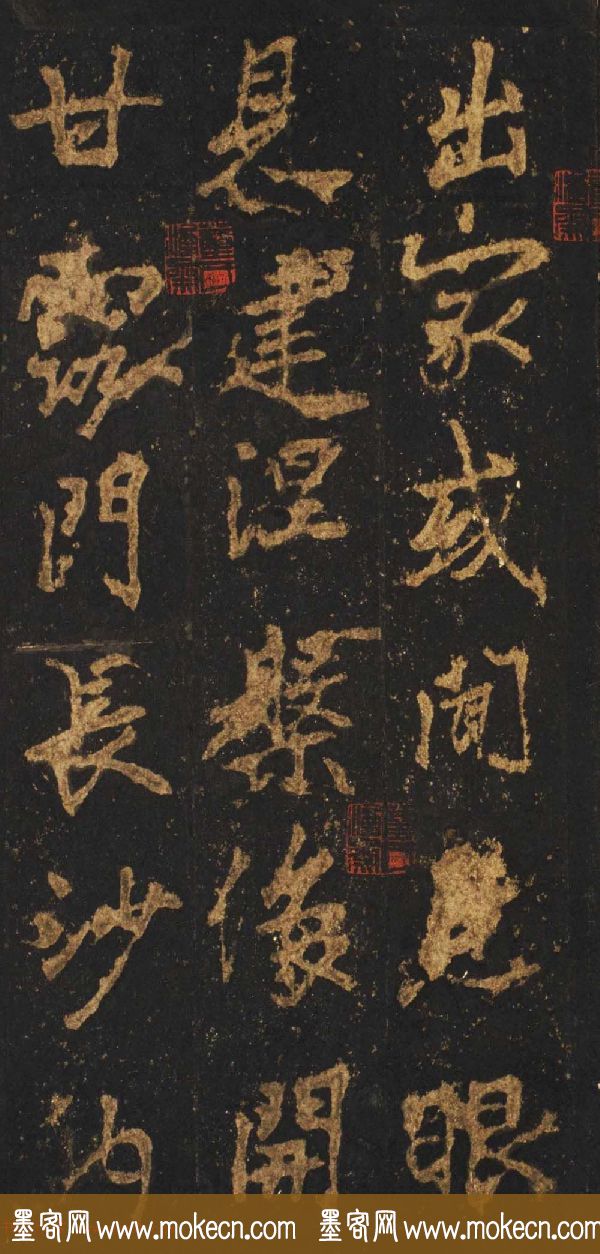 出家或聞眼
建涅槃像開
甘露門長沙内
墨客网 www.mokecn.com 墨客网 www.mokecn.com